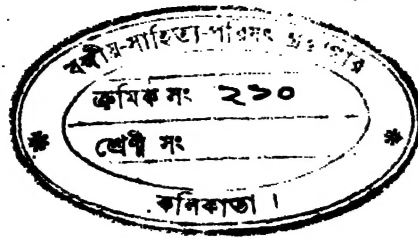 বঙ্গীয়-সাহিত্য-পরিষৎ গ্রন্থাগার
ক্রমিক নং ২১০
শ্রেণী নং
কলিকাতা ।